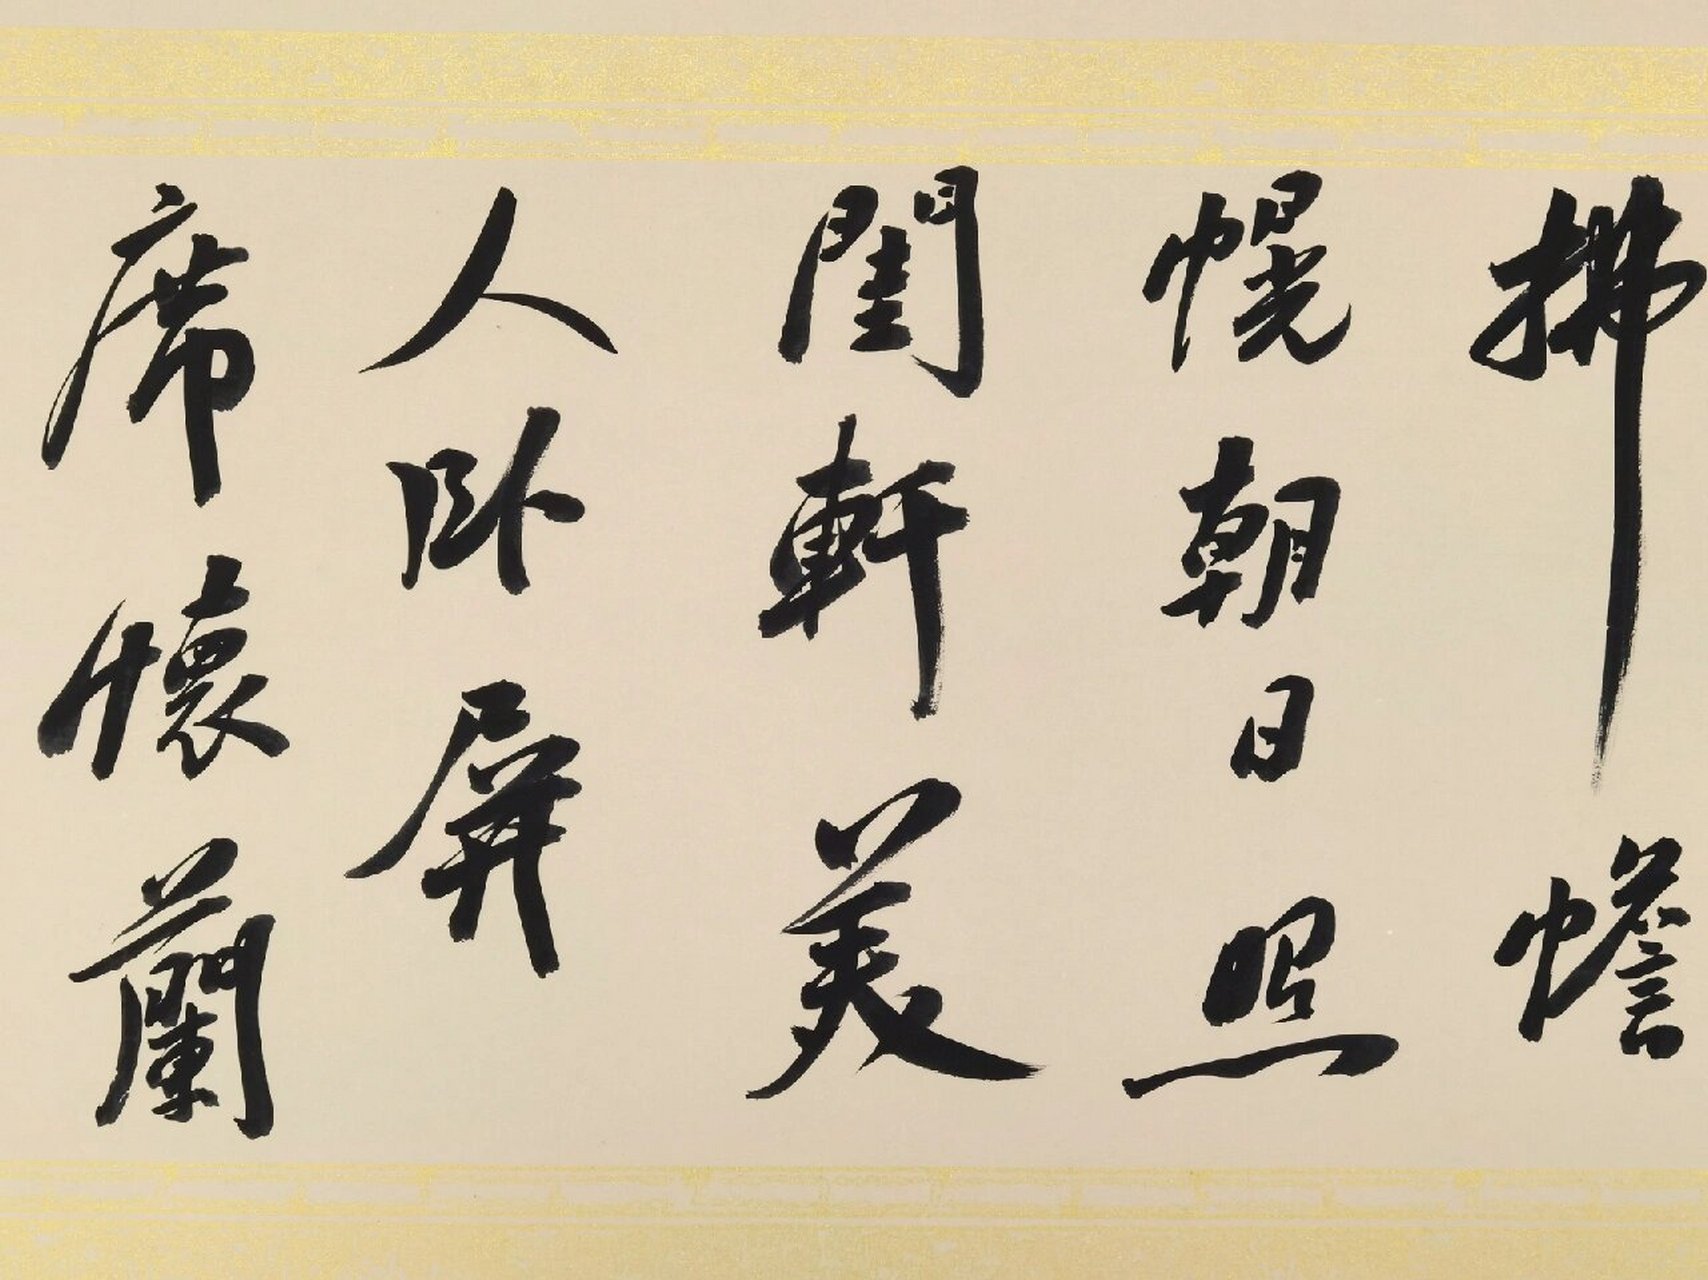 拂幨
幌朝日照
閨軒美
人卧屏
席懷蘭